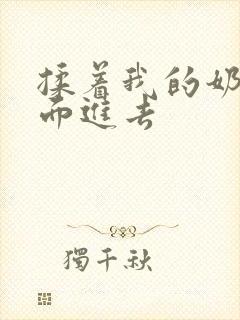 揉着我的奶
而進去
獨千秋